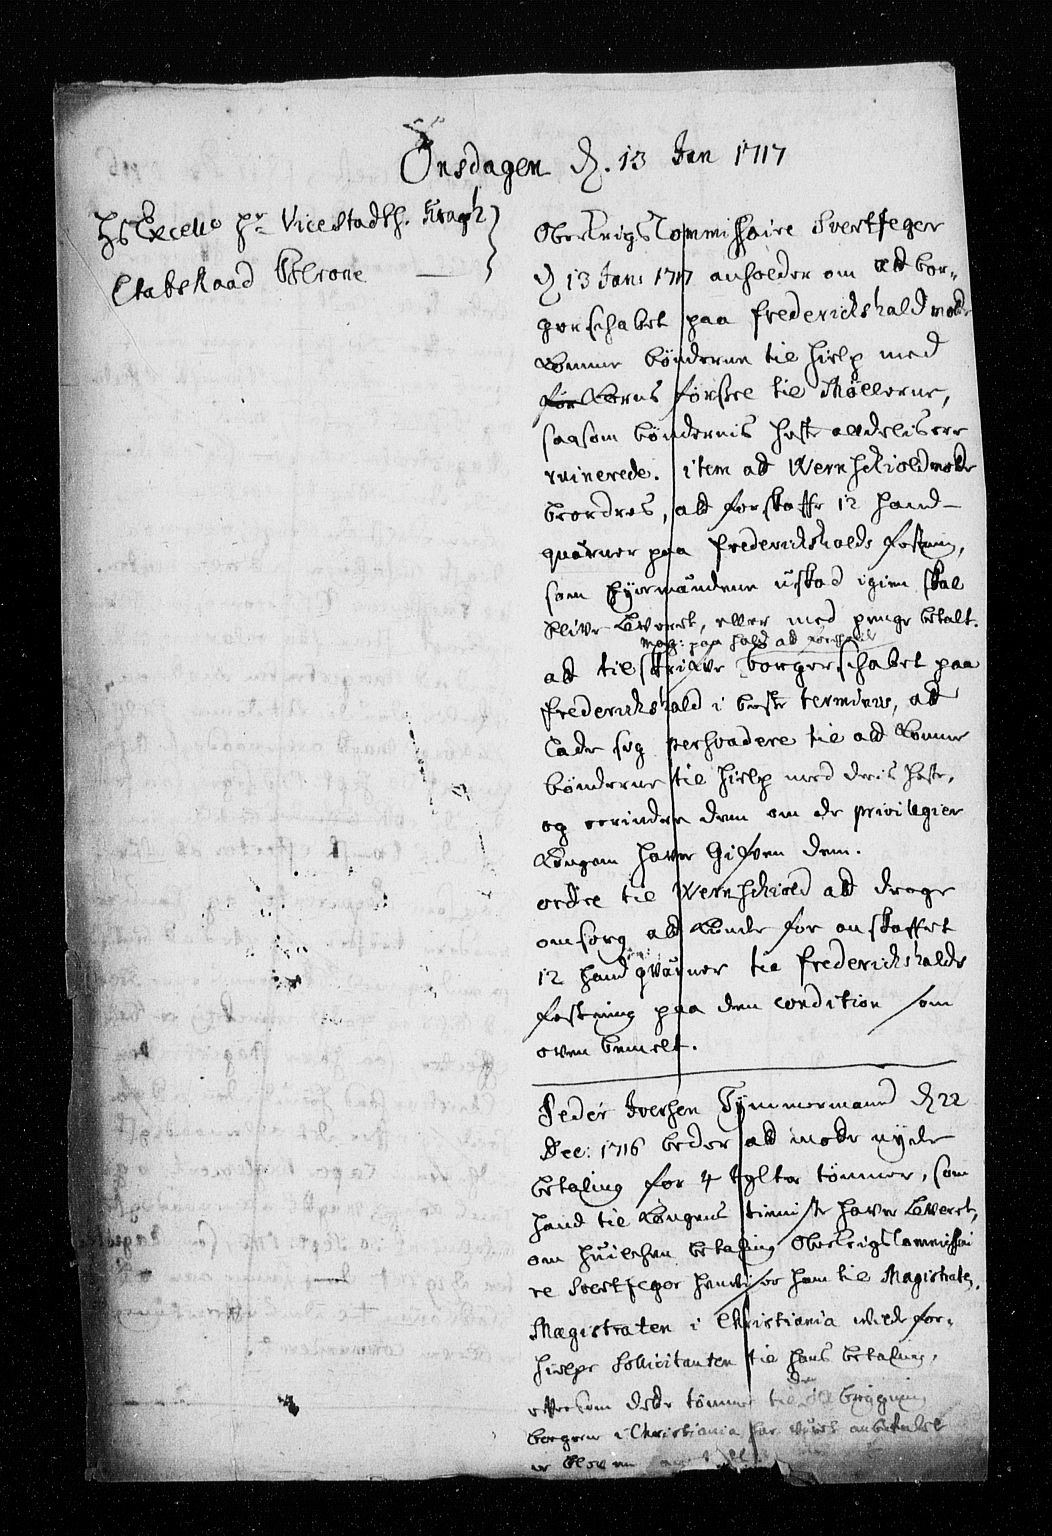 Onsdagen d. 13 Jan 1717
Hs Excell. Hr Vicestadth. Kragh
Etatsraad
OberKrigsCommissaire Svertfeger
d 13 Jan: 1717 anholder om at bor-
gerschabet paa Frederickshald motte
komme bønderne til hielp med
Korns førssel til Møllerne,
saasom bøndernis heste alldelis ere
ruinerede. item at Wernschiold motte
beordres, at forskaffe 12 hand-
quærner paa Fredericksholds Festning,
som Eyermændene uskad igien skal
blive leveret, eller med penge betalt.
Mag: paa hald at
at tilskrive borgerschabet paa
Frederickshald i beste terminis, at
lade sig persvadere til at komme
bønderne til hielp med deris heste,
og erindre dem om de privilegier
Kongen haver Gifven dem.
ordre til Wernschiold at drage
omsorg at kunde for anskaffet
12 hand qværner til Frederickshalds
Festning paa den condition som
oven bemelt.
Peder Iversen Tymmermand d 22
Dec: 1716 beder at motte nyde
betaling for 4 tylter tømmer, som
hand til Kongens tieniste haver leveret,
om huilchen betaling OberKrigsCommissai
re Svertfeger henviser ham til Magistraten.
Magistraten i Christiania vilde for-
hielpe Sollicitanten til hans betaling,
eftersom dette tømmer til den bygning
borgerne i Christiania har været anbefalet
er bleven